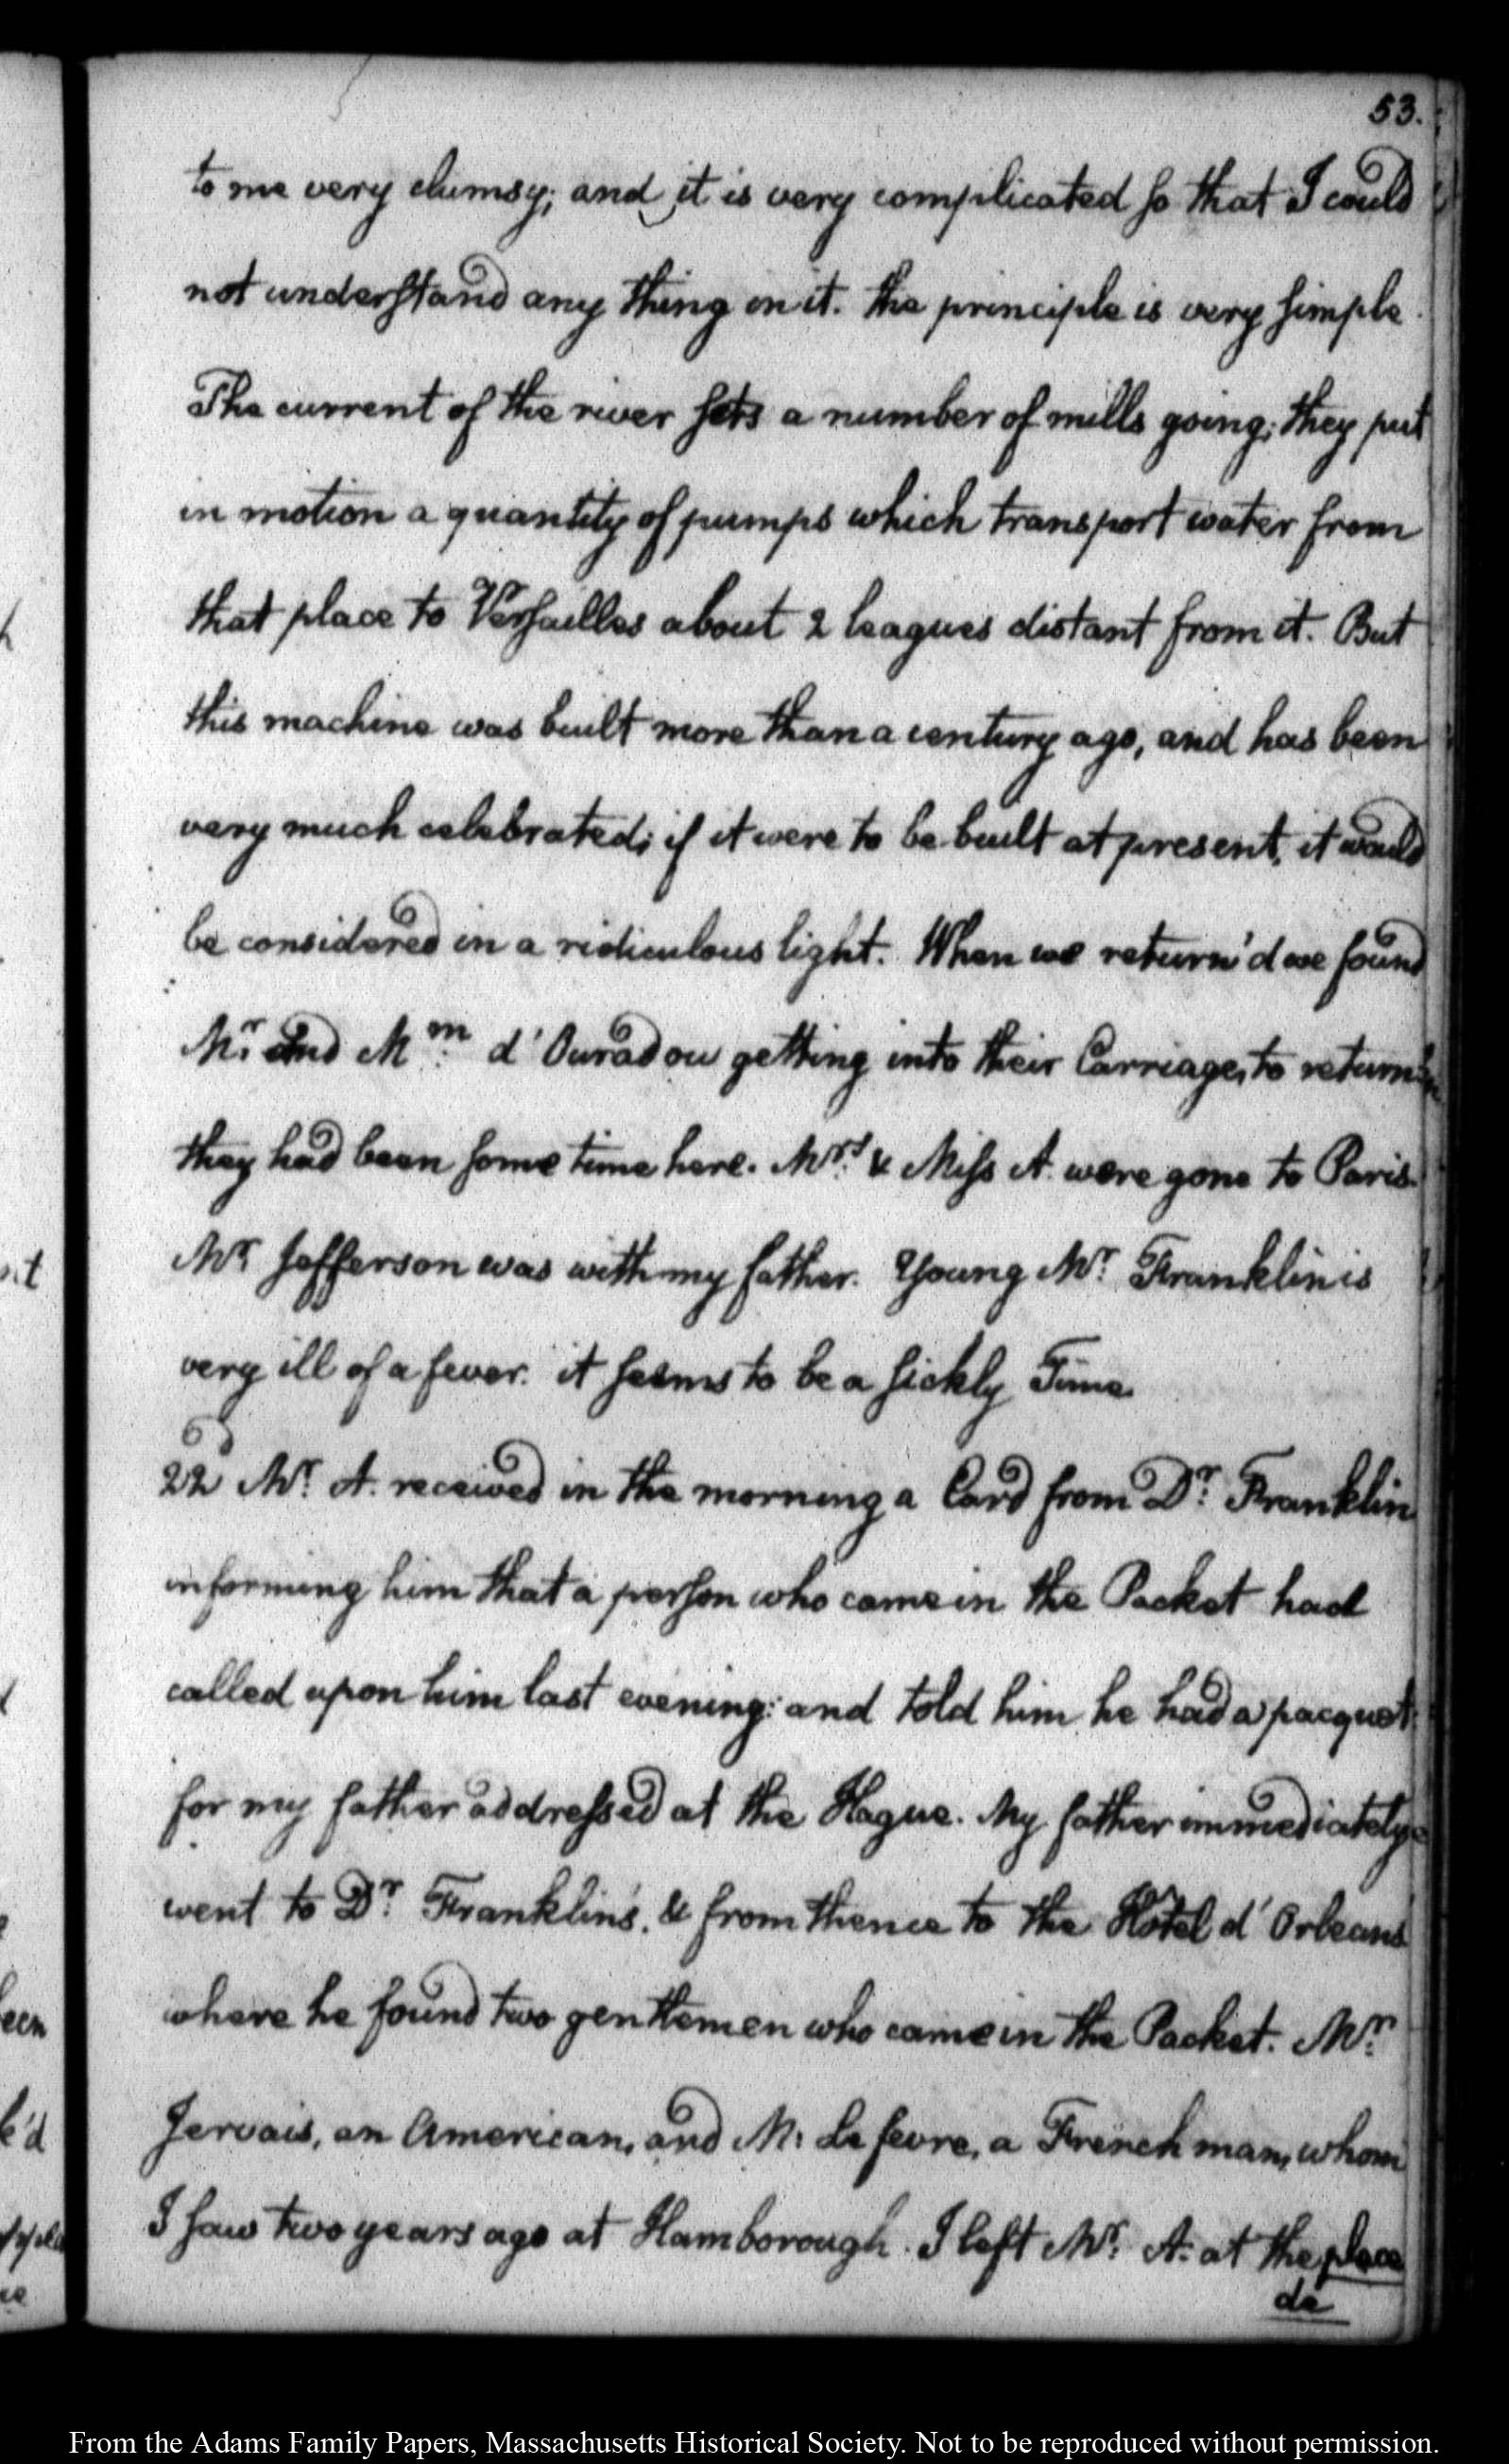 53.
to me very clumsy; and it is very complicated so that I could
not understand any thing in it. the principle is very simple.
The current of the river sets a number of mills going; they put
in motion a quantity of pumps which transport water from
that place to Versailles about 2 leagues distant from it. But
this machine was built more than a century ago, and has been
very much celebrated; if it were to be built at present, it would
be considered in a ridiculous light. When we return'd we found
Mr. and Mm. d'Ouradou getting into their Carriage, to return
they had been some time here. Mrs. & Miss A. were gone to Paris.
Mr. Jefferson was with my father. Young Mr. Franklin is
very ill of a fever. it seems to be a sickly Time.
22d Mr. A. received in the morning a Card from Dr. Franklin
informing him that a person who came in the Packet had
called upon him last evening: and told him he had a pacquet
for my father addressed at the Hague. My father immediately
went to Dr. Franklin's, & from thence to the Hôtel d'Orleans
where he found two gentlemen who came in the Packet. Mr.
Jervais, an American, and M. Le fevre, a French man, whom
I saw two years ago at Hamborough. I left Mr. A. at the place
de
From the Adams Family Papers, Massachusetts Historical Society. Not to be reproduced without permission.